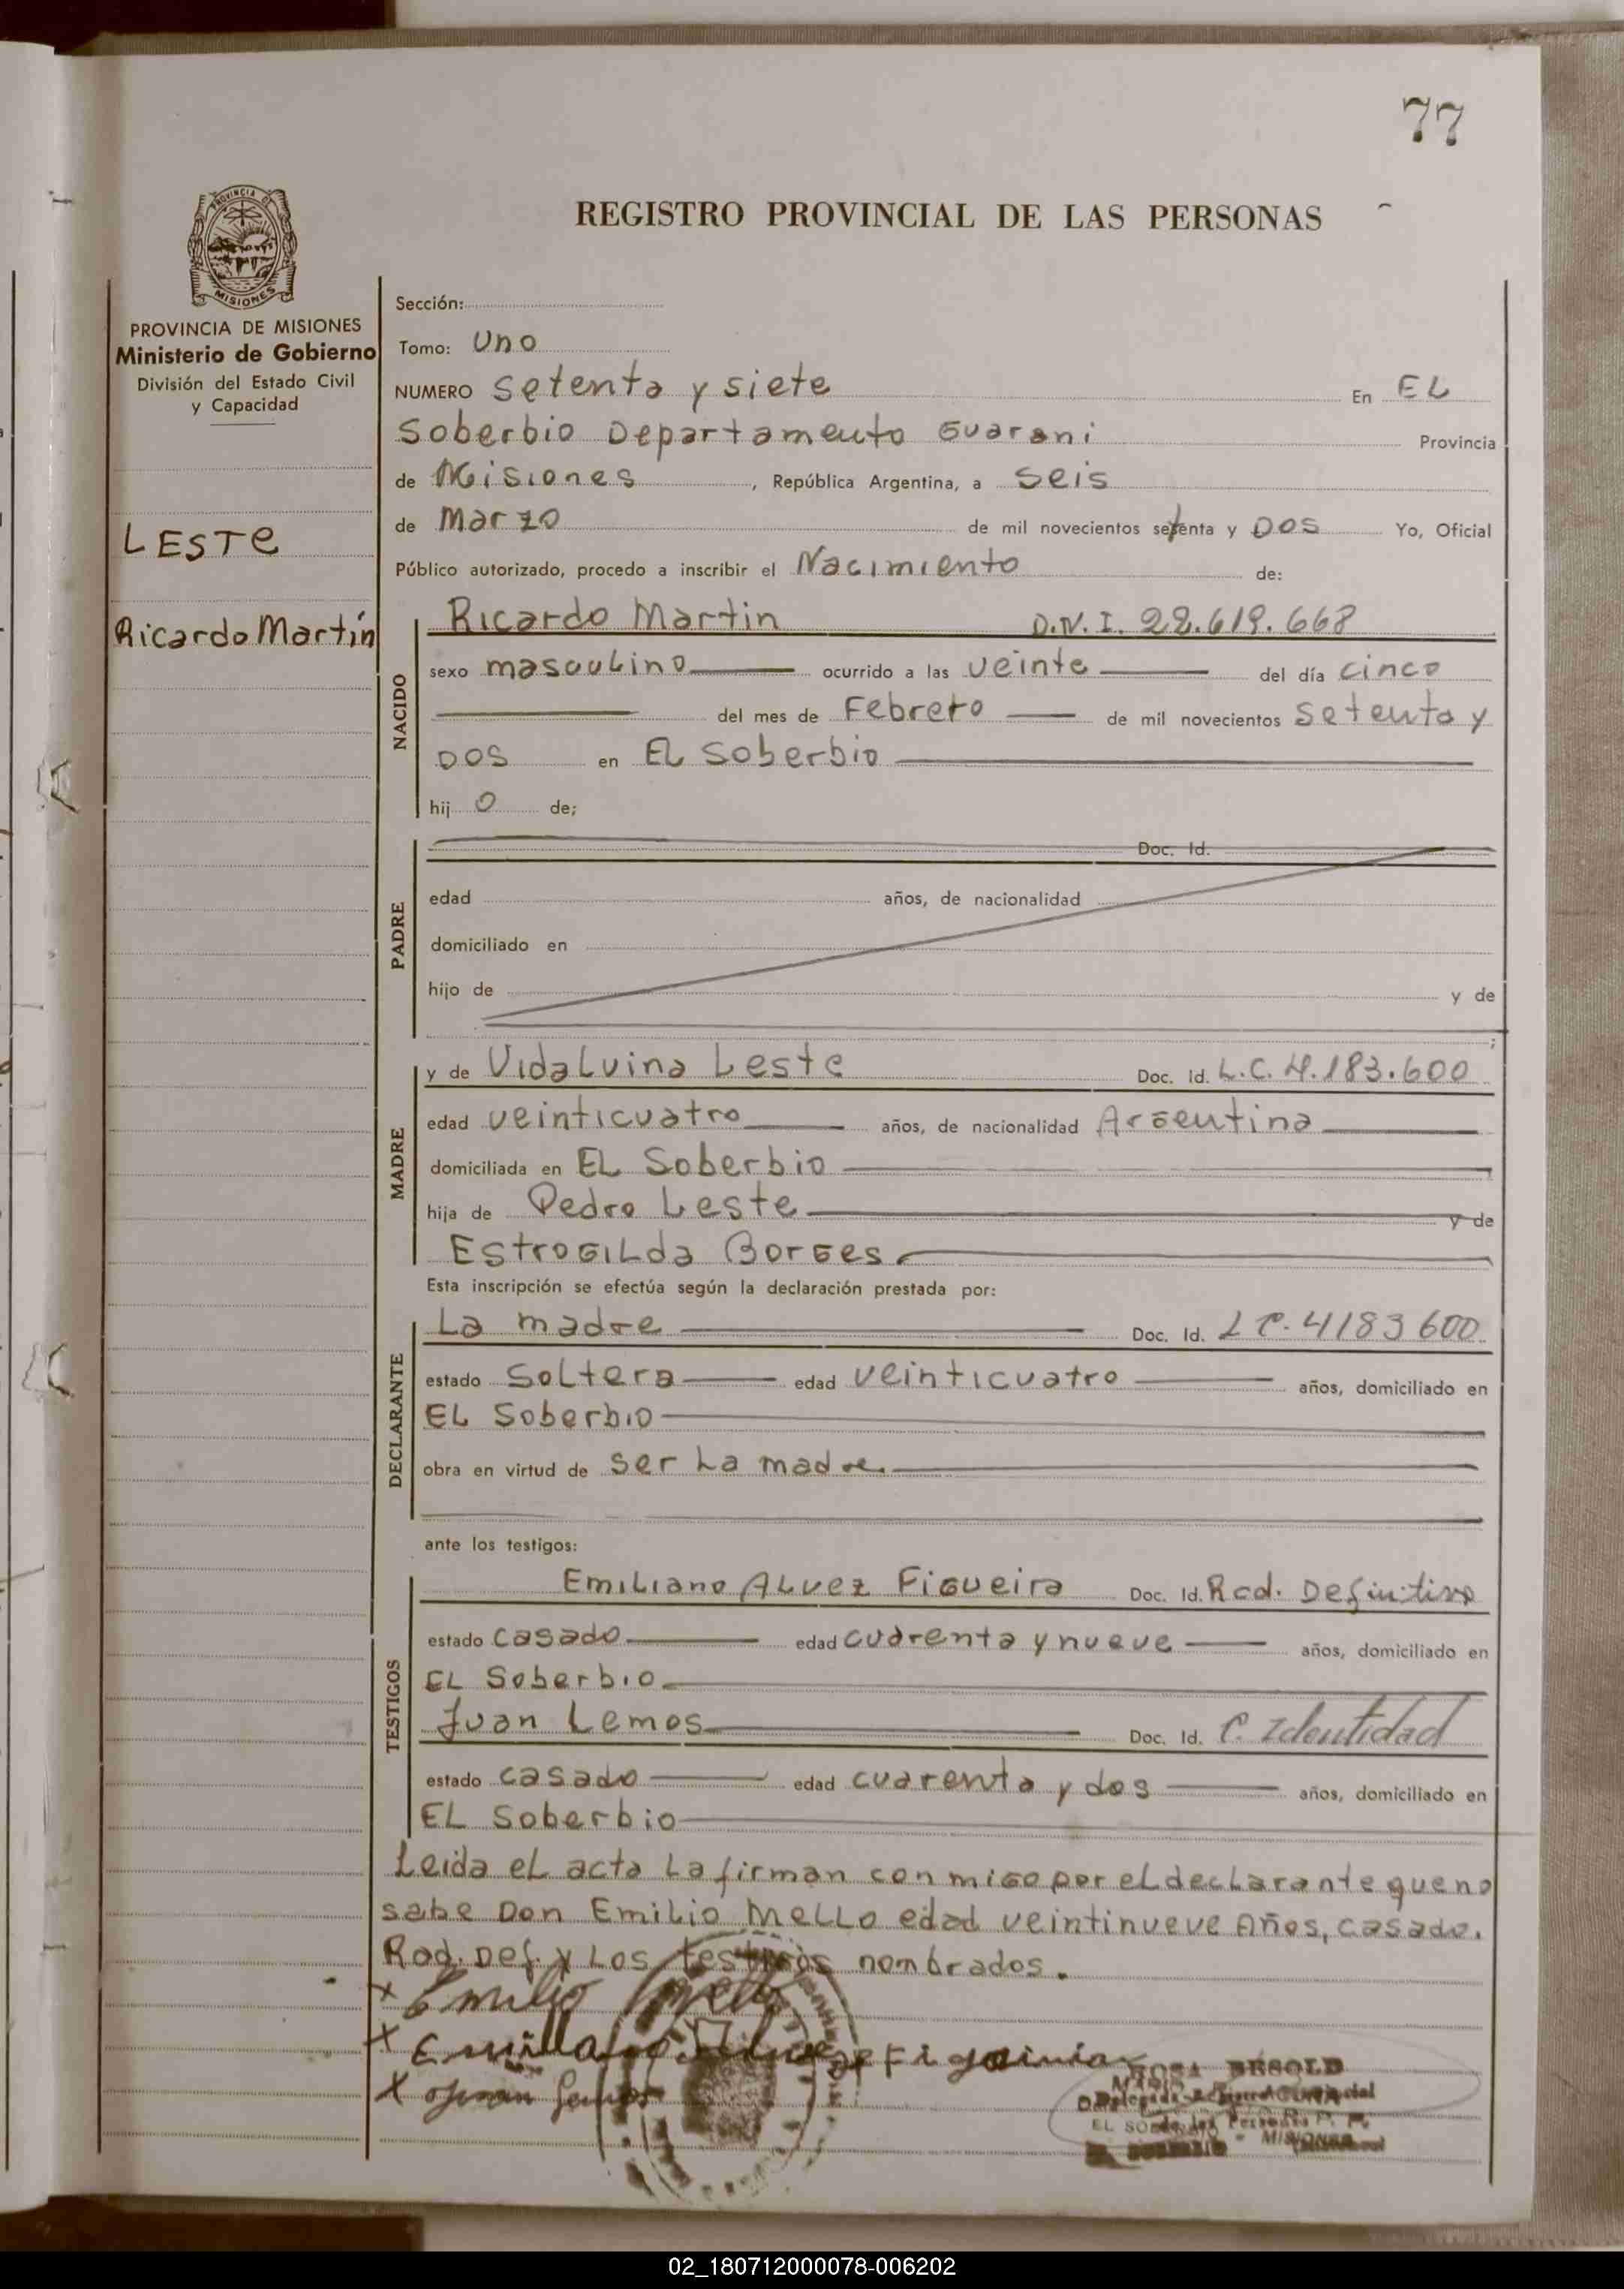 77
PROVINCIA DE
MISIONES
REGISTRO PROVINCIAL DE LAS PERSONAS
PROVINCIA DE MISIONES
Ministerio de Gobierno
División del Estado Civil
y Capacidad
LESTE
Ricardo Martín
Sección:
Tomo: Uno
NUMERO setenta y siete En EL
Soberbio Departamento Guarani Provincia
de Misiones , República Argentina, a seis
de Marzo de mil novecientos setenta y DOS Yo, Oficial
Público autorizado, procedo a inscribir el Nacimiento de:
NACIDO
Ricardo Martin D.N.I. 22.619.668
sexo masculino ocurrido a las veinte del día cinco
del mes de Febrero de mil novecientos setenta y
DOS en EL Soberbio
hij o de;
PADRE
Doc. Id.
edad años, de nacionalidad
domiciliado en
hijo de y de
;
MADRE
y de Vidalvina Leste Doc. Id. L.C. 4.183.600
edad veinticuatro años, de nacionalidad Argentina
domiciliada en EL Soberbio
hija de Pedro Leste y de
Estrogilda Borges
Esta inscripción se efectúa según la declaración prestada por:
DECLARANTE
La madre Doc. Id. L C. 4183600
estado soltera edad veinticuatro años, domiciliado en
EL Soberbio
obra en virtud de ser La madre.
ante los testigos:
TESTIGOS
Emiliano Alvez Figueira Doc. Id. Rad. Definitiva
estado casado edad cuarenta y nueve años, domiciliado en
EL Soberbio
Juan Lemos Doc. Id. C. Identidad
estado casado edad cuarenta y dos años, domiciliado en
EL Soberbio
Leida el acta La firman con migo por el declarante que no
sabe Don Emilio Mello edad veintinueve Años, casado.
Rad. Def. y Los testigos nombrados.
x Emilio Mello
x Emiliano
x
BESOLD
MISIONES
02_180712000078-006202